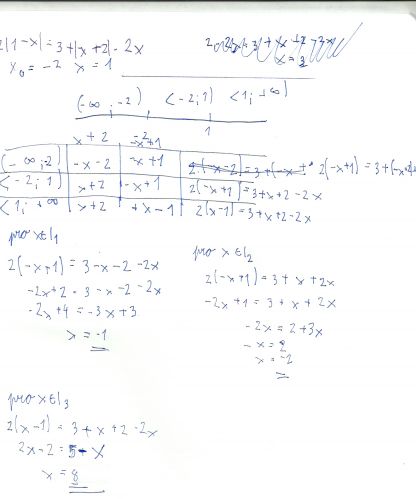 2|1-x| = 3+|x+2| - 2x
x₀ = -2   x = 1
x = 3
(-∞, -2)   <-2; 1)   <1; +∞)
-2   1
x+2   -x+1
(-∞, 2)   -x-2   -x+1   2(-x+1) = 3+(-x-2)
<-2; 1)   x+2   -x+1   2(-x+1) = 3+x+2-2x
<1; +∞   x+2   +x-1   2(x-1) = 3+x+2-2x
pro x∈I₁
2(-x+1) = 3-x-2-2x
-2x+2 = 3-x-2-2x
-2x+4 = -3x+3
x = -1
pro x∈I₂
2(-x+1) = 3+x+2x
-2x+1 = 3+x+2x
-2x = 2+3x
-x = 2
x = -2
pro x∈I₃
2(x-1) = 3+x+2-2x
2x-2 = 5+x
x = 8